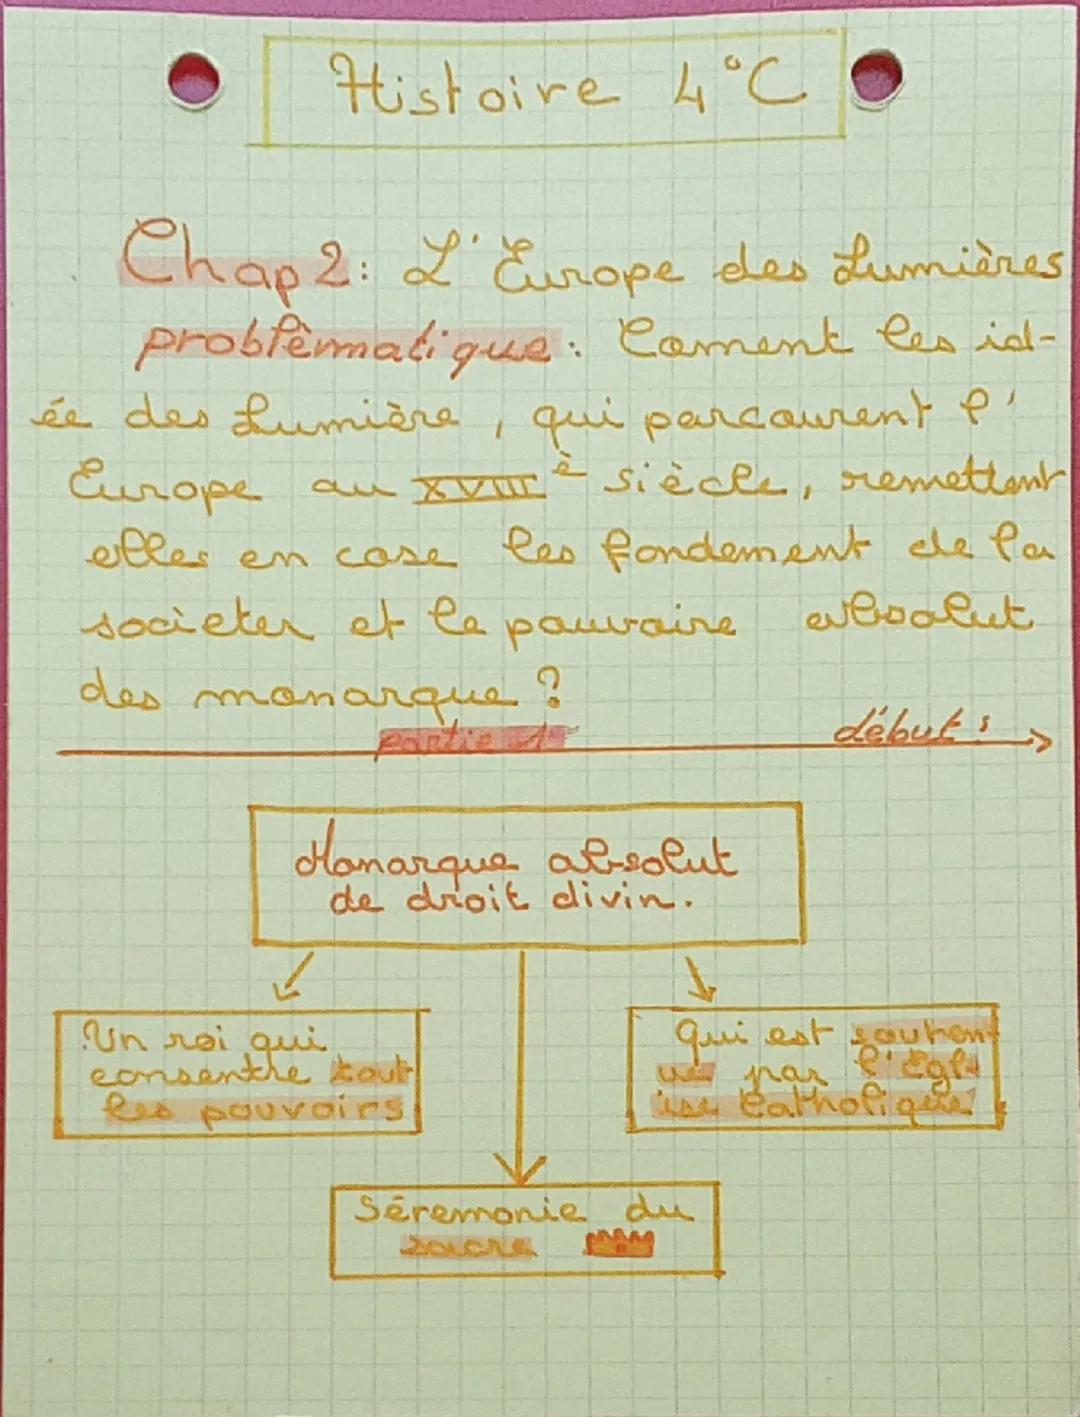 Histoire 4°C
Chap 2: L'Europe des Lumières
problèmatique: Coment les id-
ée des Lumière, qui parcourent l'
Europe au XVIII è siècle, remettent
elles en case les fondement de la
societer et le pouvoire absolut
des monarque?
partie 1
début:
Monarque absolut
de droit divin.
Un roi qui
consentre tout
les pouvoirs
Qui est souten
ue par l'égl
ise Catholique
Séremonie du
sacre